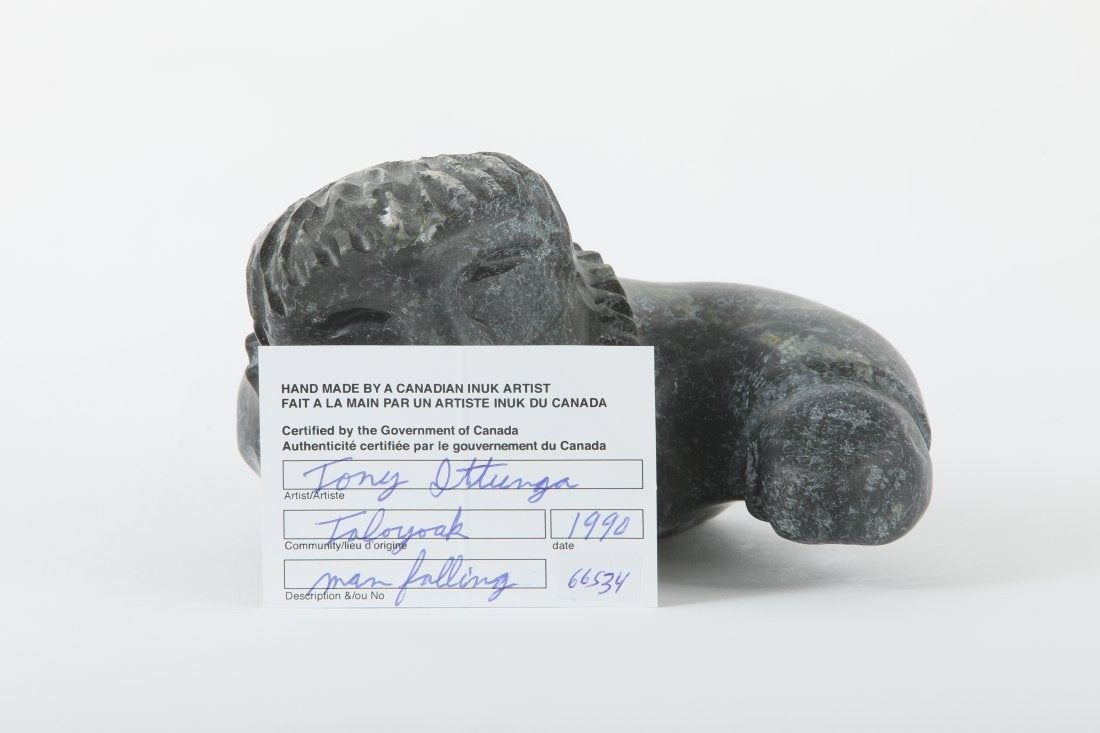 HAND MADE BY A CANADIAN INUK ARTIST
FAIT A LA MAIN PAR UN ARTISTE INUK DU CANADA
Certified by the Government of Canada
Authenticité certifiée par le gouvernement du Canada
Tony Ittunga
Artist/Artiste
Taloyoak 1990
Community/lieu d'origine date
man falling 66534
Description &/ou No